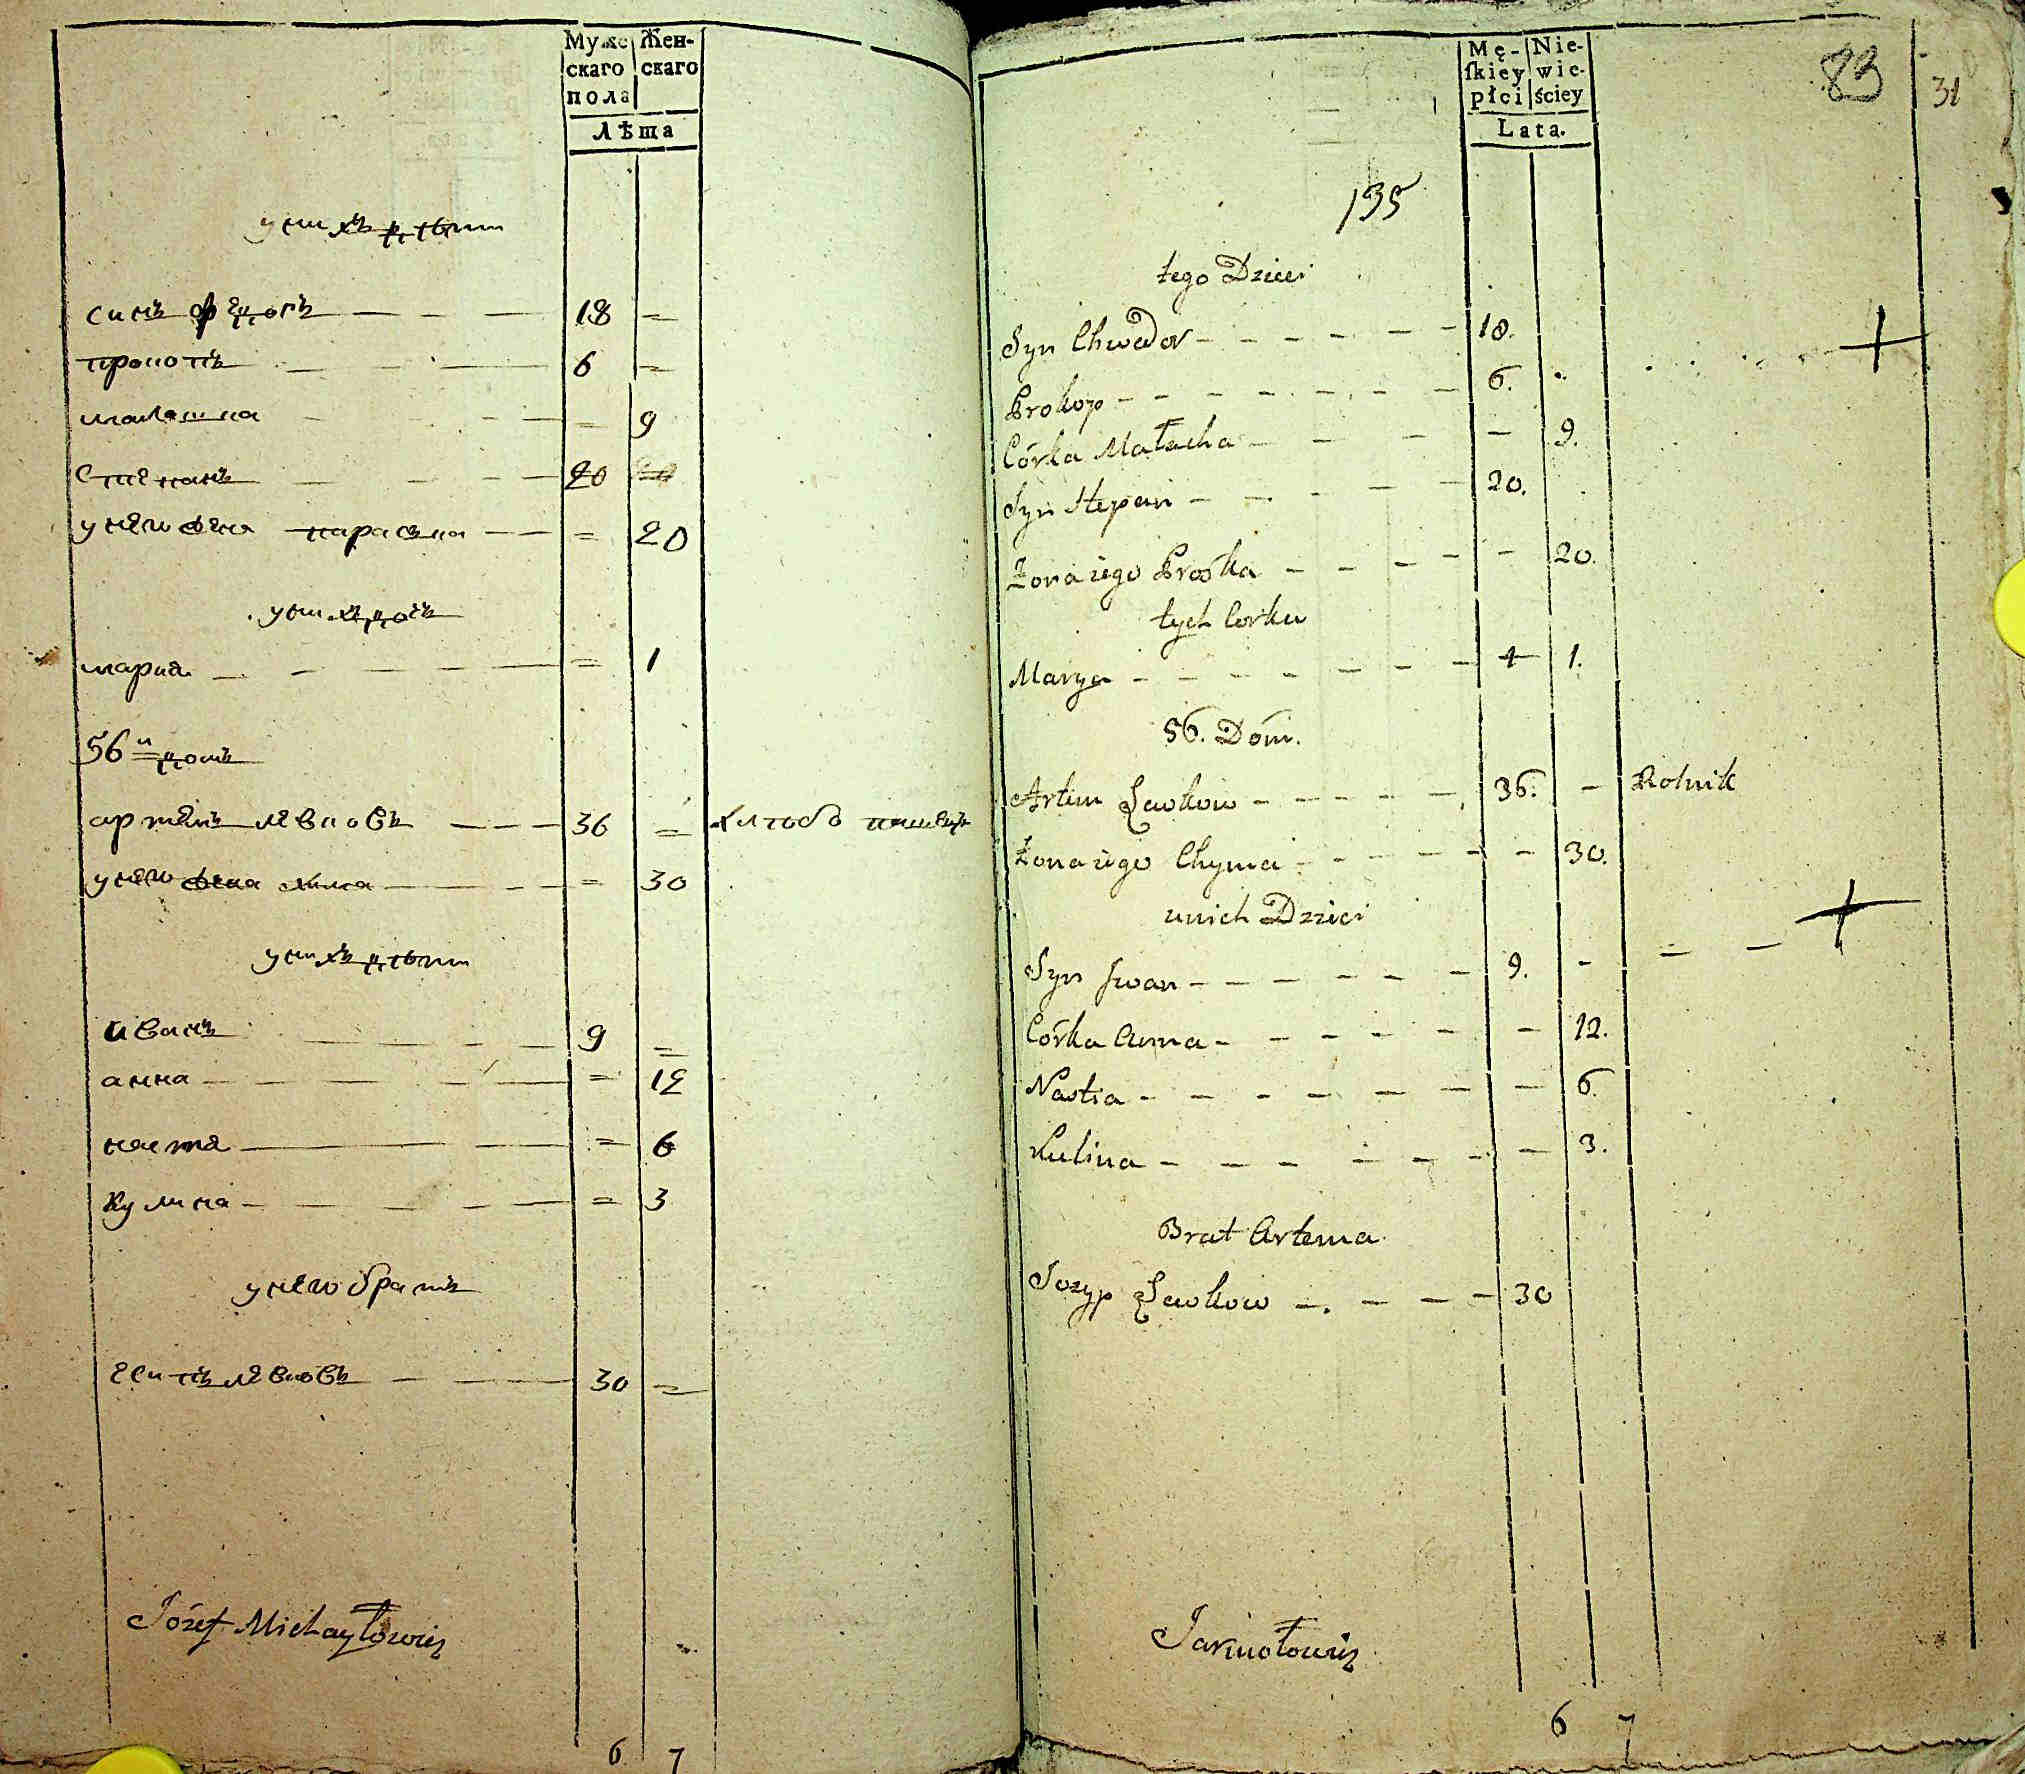 Мужескаго пола
Женскаго
Лѣта
у нихъ дѣти
синъ ѳедоръ 18 =
прокопъ 6 =
малашка 9
степанъ 20
у него жена параска = 20
у нихъ дочь
мария = 1
56й домъ
артемъ левковъ 36 = хлѣбо пашецъ
у него жена хима = 30
у нихъ дѣти
иванъ 9 =
анна = 12
настя = 6
кулина = 3
у него братъ
есипъ левковъ 30 =
Józef Michayłowicz
6 7
Męſkiey płci
Niewieściey
Lata.
83
31
195
tego Dzieci
Syn Chwedor 18.
Prokop 6.
Córka Małacha - 9.
Syn Stepan 20.
Żona iego Prośka - 20.
tych Corka
Marya 1.
56. Dom.
Artim Lewkow 36. - Rolnik
Żona iego Chyma - 30.
u nich Dzieci
Syn Jwan 9. -
Córka Anna - 12.
Nastia - 6.
Kulina - 3.
Brat Artema
Jozyp Lewkow 30
Jarmołowicz
6 7